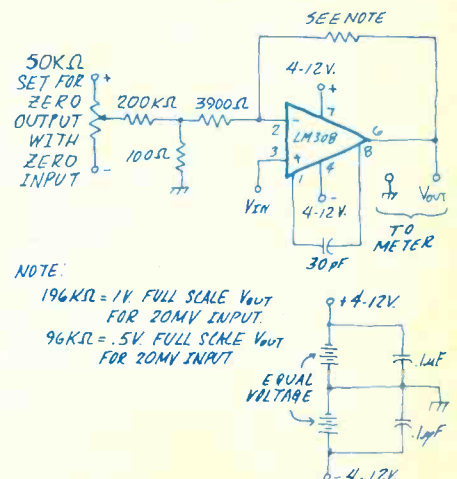 SEE NOTE
50KΩ
SET FOR
ZERO
OUTPUT
WITH
ZERO
INPUT
+
-
200KΩ
3900Ω
100Ω
4-12V.
+
7
2
-
LM308
6
3
+
8
1
4
-
4-12V.
VIN
VOUT
TO
METER
30pF
NOTE:
196KΩ = 1V. FULL SCALE VOUT
FOR 20MV INPUT.
96KΩ = .5V. FULL SCALE VOUT
FOR 20MV INPUT
+4-12V.
EQUAL
VOLTAGE
.1µF
.1µF
-4-12V.